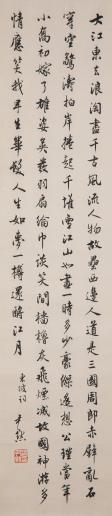 大江東去浪淘盡千古風流人物故壘西邊人道是三國周郎赤壁亂石
穿空驚濤拍岸捲起千堆雪江山如畫一時多少豪傑遙想公瑾當年
小喬初嫁了雄姿英發羽扇綸巾談笑間檣櫓灰飛煙滅故國神游多
情應笑我早生華髮人生如夢一樽還酹江月 東坡詞 尹默